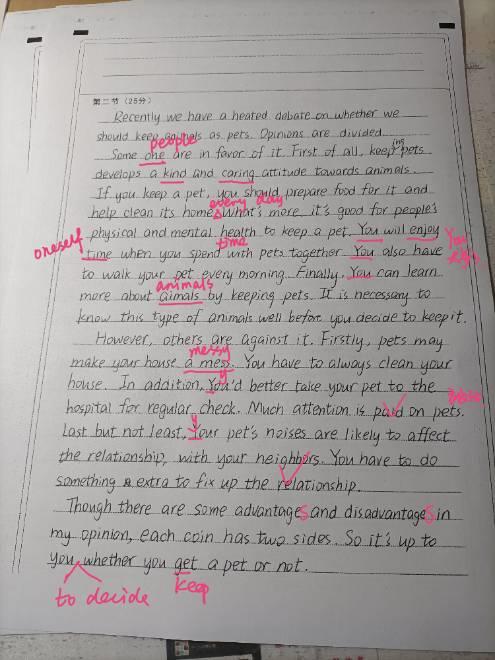 第二节 (25分)
Recently we have a heated debate on whether we
should keep animals as pets. Opinions are divided.
people
Some one are in favor of it. First of all, keep pets
ing
develops a kind and caring attitude towards animals.
If you keep a pet, you should prepare food for it and
every day
help clean its home. What's more, it's good for people's
oneself
physical and mental health to keep a pet. You will enjoy
time
time when you spend with pets together. You also have
to walk your pet every morning. Finally, You can learn
animals
more about aimals by keeping pets. It is necessary to
know this type of animals well before you decide to keep it.
However, others are against it. Firstly, pets may
messy
make your house a mess. You have to always clean your
y
house. In addition, You'd better take your pet to the
hospital for regular check. Much attention is paid on pets.
y
Last but not least, Your pet's noises are likely to affect
the relationship, with your neighbors. You have to do
something extra to fix up the relationship.
Though there are some advantages and disadvantages in
my opinion, each coin has two sides. So it's up to
you, whether you get a pet or not.
to decide keep